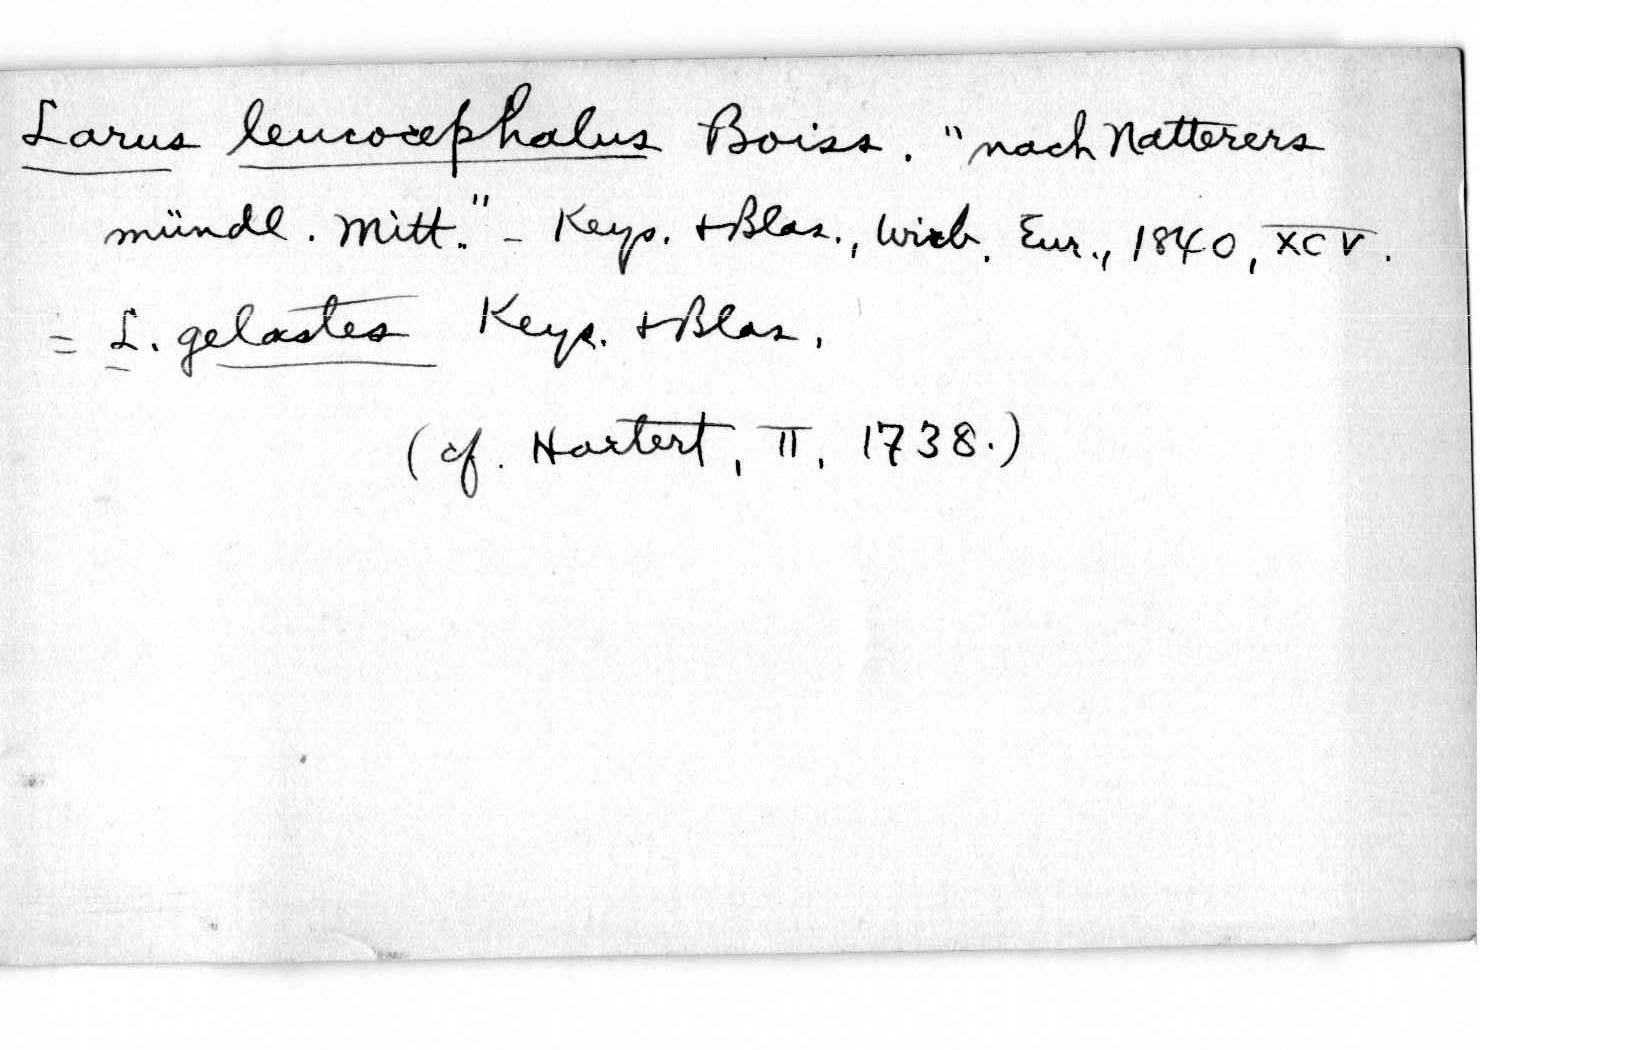 Larus leucocephalus Boiss. "nach Natterers
mündl. Mitt." - Keys. + Blas., Wirb. Eur., 1840, XCV.
= L. gelastes Keys. + Blas.
(cf. Hartert, II, 1738.)